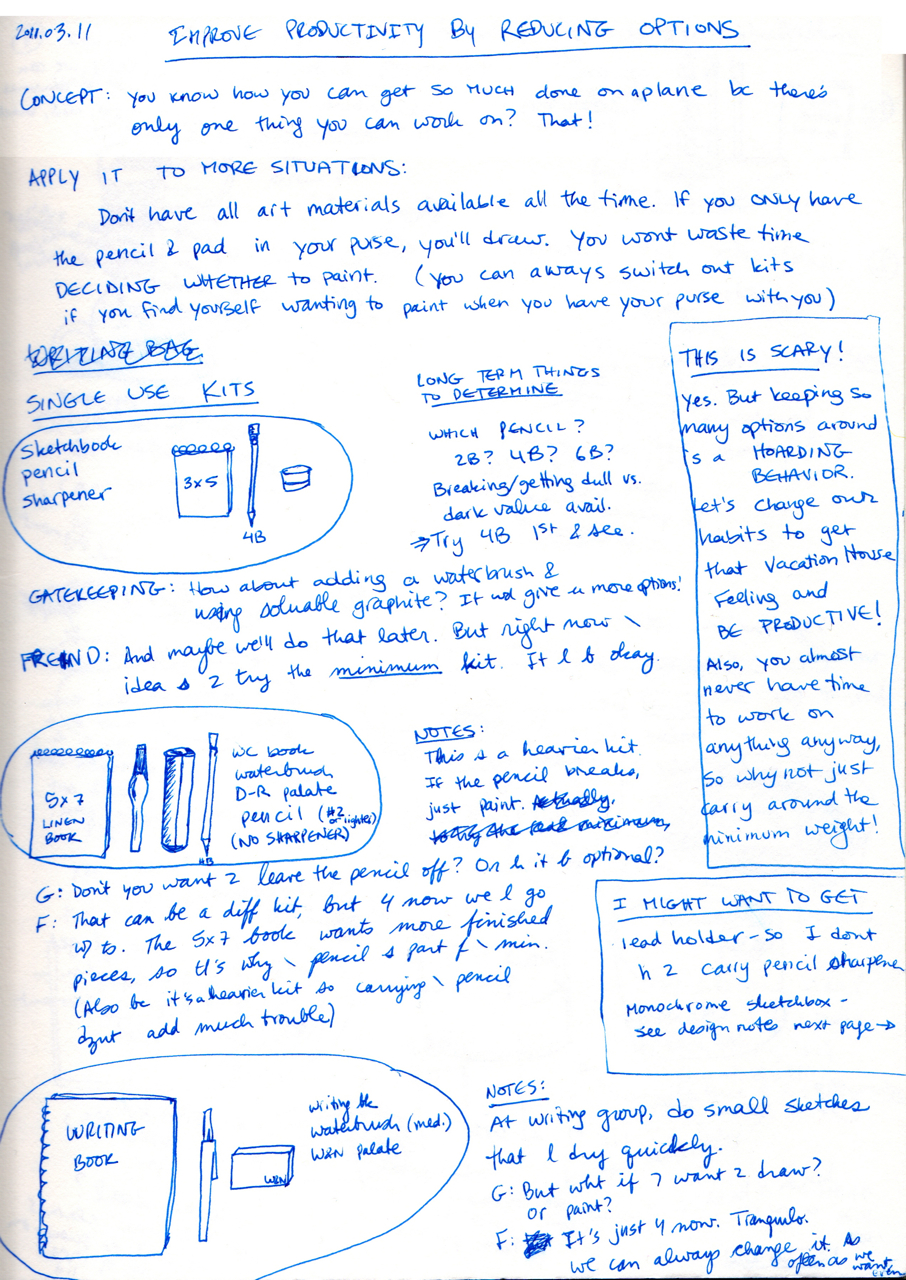 2011.03.11
IMPROVE PRODUCTIVITY BY REDUCING OPTIONS
CONCEPT: you know how you can get so MUCH done on a plane bc there's
only one thing you can work on? That!
APPLY IT TO MORE SITUATIONS:
Don't have all art materials available all the time. If you ONLY have
the pencil & pad in your purse, you'll draw. You wont waste time
DECIDING WHETHER to paint. (you can aways switch out kits
if you find yourself wanting to paint when you have your purse with you)
WRITING BAG
SINGLE USE KITS
Sketchbook
pencil
sharpener
3x5
4B
LONG TERM THINGS
TO DETERMINE
WHICH PENCIL?
2B? 4B? 6B?
Breaking/getting dull vs.
dark value avail.
⇒ Try 4B 1st & see.
THIS IS SCARY!
yes. But keeping so
many options around
is a HOARDING
BEHAVIOR.
Let's change our
habits to get
that Vacation House
Feeling and
BE PRODUCTIVE!
Also, you almost
never have time
to work on
anything anyway,
so why not just
carry around the
minimum weight!
GATEKEEPING: How about adding a waterbrush &
using soluable graphite? It wd give u more options!
FRIEND: And maybe we'll do that later. But right now \
idea s 2 try the minimum kit. It l b okay.
5x7
LINEN
BOOK
WC book
waterbrush
D-R palate
pencil (#2 or lighter)
(NO SHARPENER)
NOTES:
This s a heavier kit.
If the pencil breaks,
just paint. Actually,
G: Don't you want 2 leave the pencil off? Or h it b optional?
F: That can be a diff kit, but 4 now we l go
w/ ts. The 5x7 book wants more finished
pieces, so tt's why \ pencil s part f \ min.
(Also bc it's a heavier kit so carrying \ pencil
dznt add much trouble)
I MIGHT WANT TO GET
lead holder - so I dont
h 2 carry pencil sharpener
Monochrome sketchbox -
see design notes next page →
WRITING
BOOK
W&N
writing bk
waterbrush (med.)
W&N palate
NOTES:
At writing group, do small sketches
that l dry quickly.
G: But wht if I want 2 draw?
or paint?
F: It's just 4 now. Tranquilo.
we can always change it. As
often as we
want, even